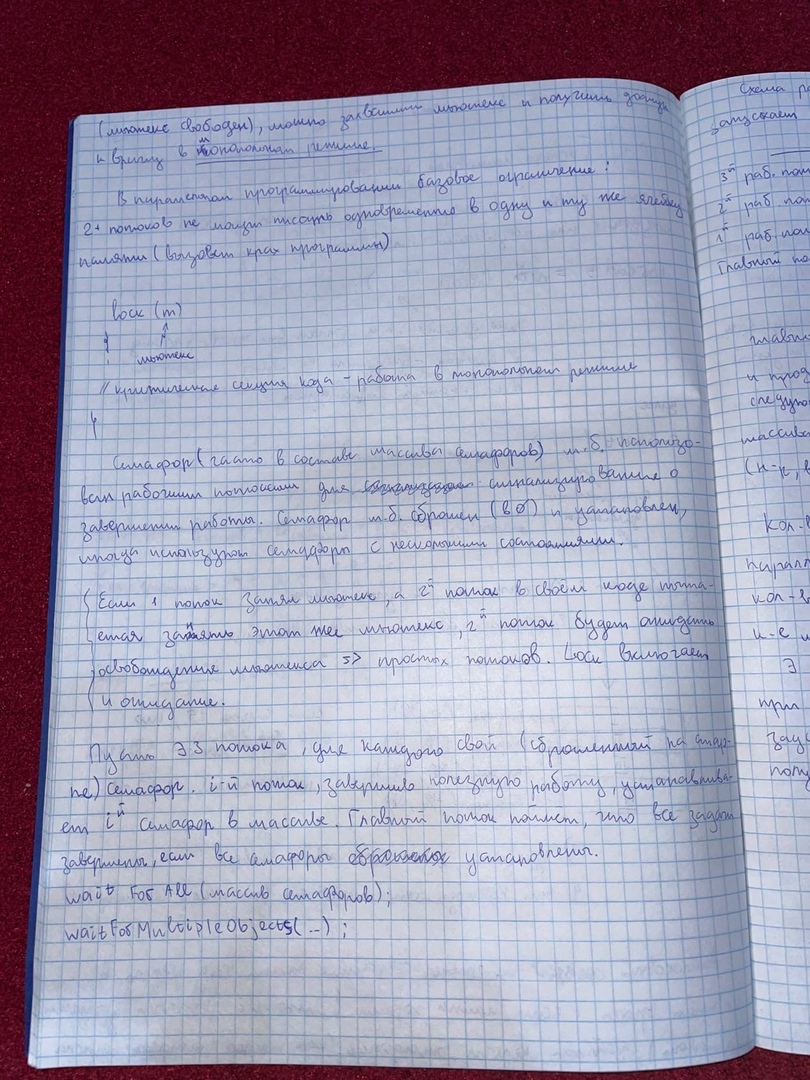 (мьютекс свободен), можно захватить мьютекс и получить доступ
к ... в монопольном режиме.
В параллельном программировании базовое ограничение:
2+ потоков не могут писать одновременно в одну и ту же ячейку
памяти (вызовет крах программы)
Lock (m)
{
мьютекс
// критическая секция кода - работа в монопольном режиме
}
Семафор (часто в составе массива семафоров) м.б. использо-
ван рабочими потоками для сигнализирования о
завершении работы. Семафор м.б. сброшен (в 0) и установлен,
иногда используют семафоры с несколькими состояниями.
Если 1 поток занял мьютекс, а 2й поток в своём коде пыта-
ется занять этот же мьютекс, 2й поток будет ожидать
освобождения мьютекса => простых потоков. Lock включает
и ожидание.
Пусть ∃ 3 потока, для каждого свой (сброшенный на стар-
те) семафор. i-й поток, завершив полезную работу, устанавлива-
ет iй семафор в массиве. Главный поток поймет, что все задачи
завершены, если все смафоры установлены.
wait For All (массив семафоров);
waitForMultipleObjects(..);
Схема
запускает
3й раб. пот
2й раб. пот
1й раб. пот
Главный по
главн
и прод
следую
массива
Кол-в
паралл
кол-в
и-е
Э
при
зад
полу